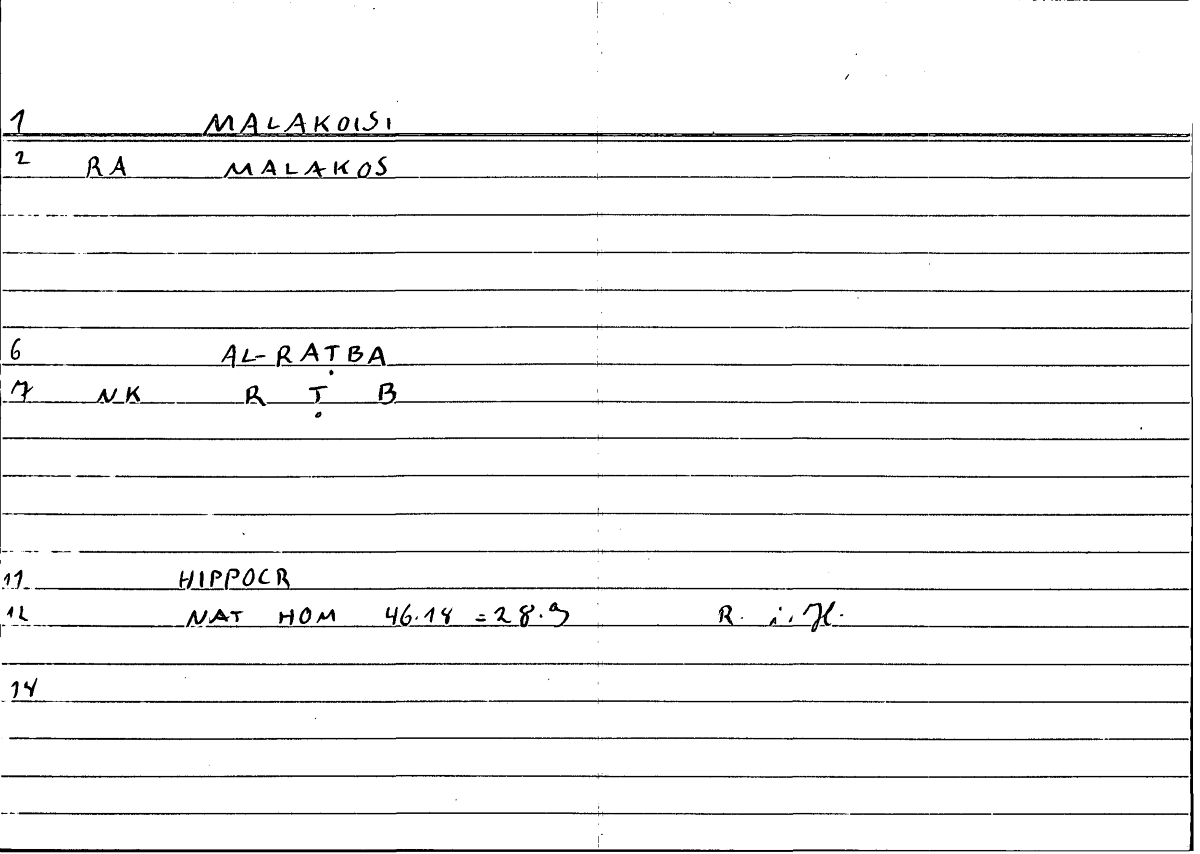 1 MALAKOISI
2 RA MALAKOS
6 AL-RAṬBA
7 NK R Ṭ B
11 HIPPOCR
12 NAT HOM 46.14 = 28.9 R. i. H.
14